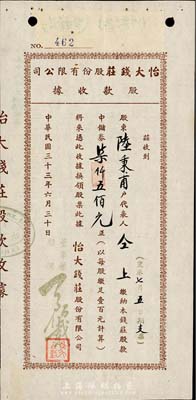 NO. 462
怡大錢莊股份有限公司
股款收據
茲收到
股東陸秉甫戶代表人仝上繳納本錢莊股款
中儲券柒仟五佰元正(以每股繳足壹百元計算)
將來憑此收據換領股票此據
怡大錢莊股份有限公司
中華民國三十三年六月三十日
怡大錢莊股款收據